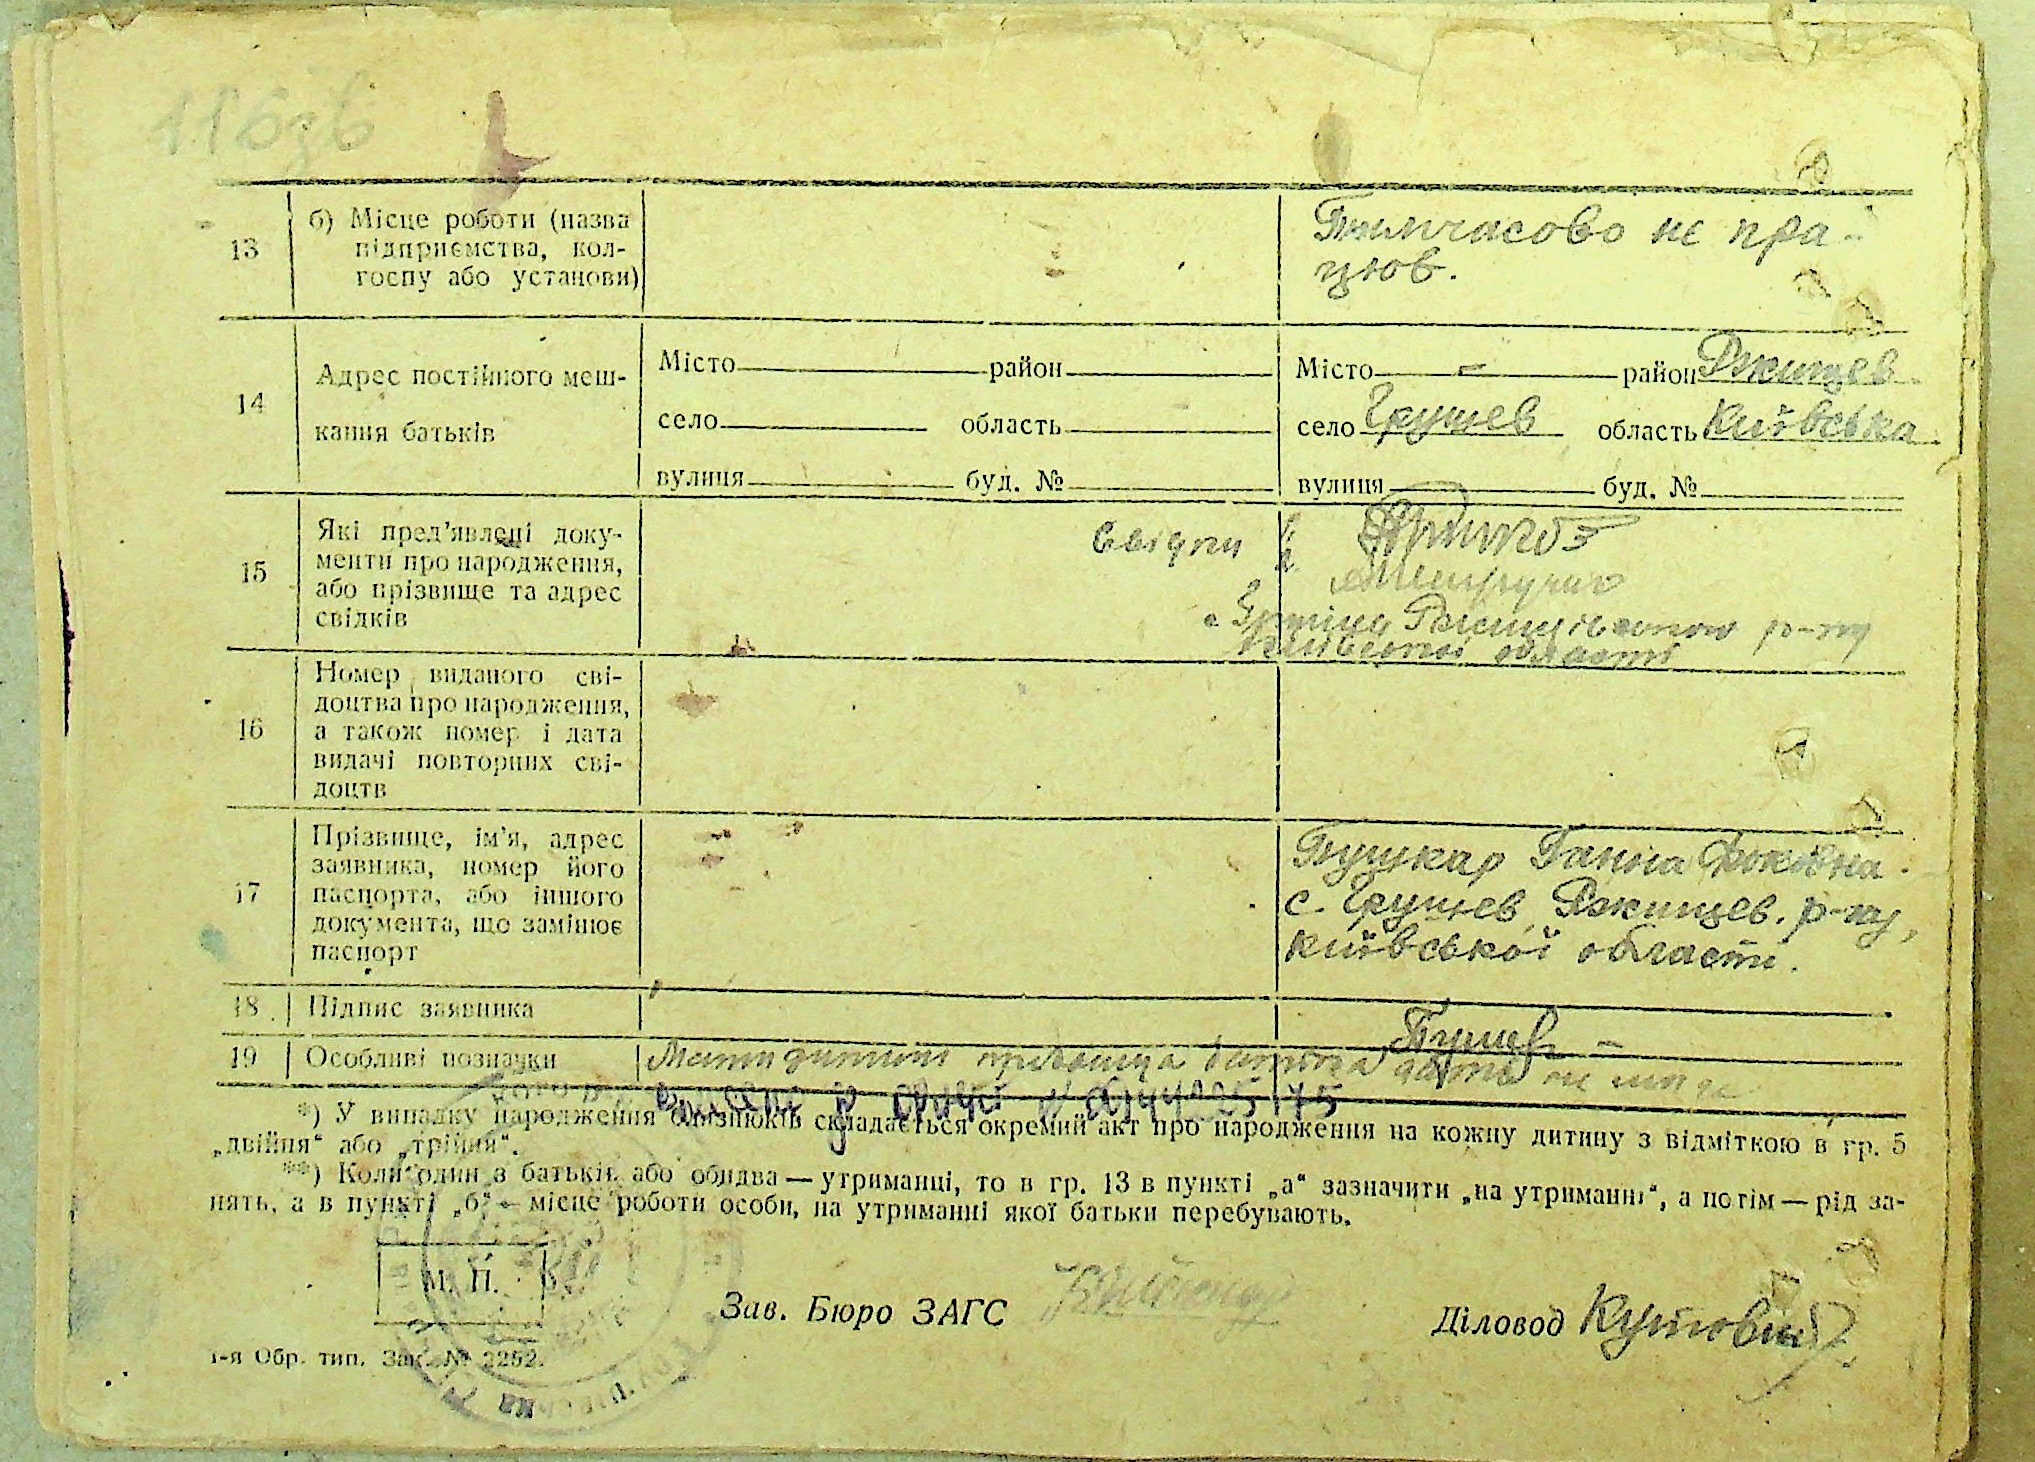 116зв
13
б) Місце роботи (назва
підприємства, кол-
госпу або установи)
Тимчасово не пра-
цюв.
14
Адрес постійного меш-
кання батьків
Місто район
село область
вулиця буд. №
Місто — район Ржищев
село Грушев область Київська
вулиця буд. №
15
Які пред'явлені доку-
менти про народження,
або прізвище та адрес
свідків
Свідки
Ржищівського р-ну
Київської області
16
Номер виданого сві-
доцтва про народження,
а також номер і дата
видачі повторних сві-
доцтв
17
Прізвище, ім'я, адрес
заявника, номер його
паспорта, або іншого
документа, що замінює
паспорт
Пушкар Ганна Фоківна.
с. Грушев Ржищев. р-ну,
київської області.
18 Підпис заявника
19 Особливі позначки
Мати дитини прізвища батька
*) У випадку народження близнюків складається окремий акт про народження на кожну дитину з відміткою в гр. 5
„двійня“ або „трійня“.
**) Коли один з батьків або обидва — утриманці, то в гр. 13 в пункті „а“ зазначити „на утриманні“, а потім — рід за-
нять, а в пункті „б“ — місце роботи особи, на утриманні якої батьки перебувають.
М. П.
Зав. Бюро ЗАГС
Діловод Кутовий
1-я Обр. тип. Зак. № 2252.